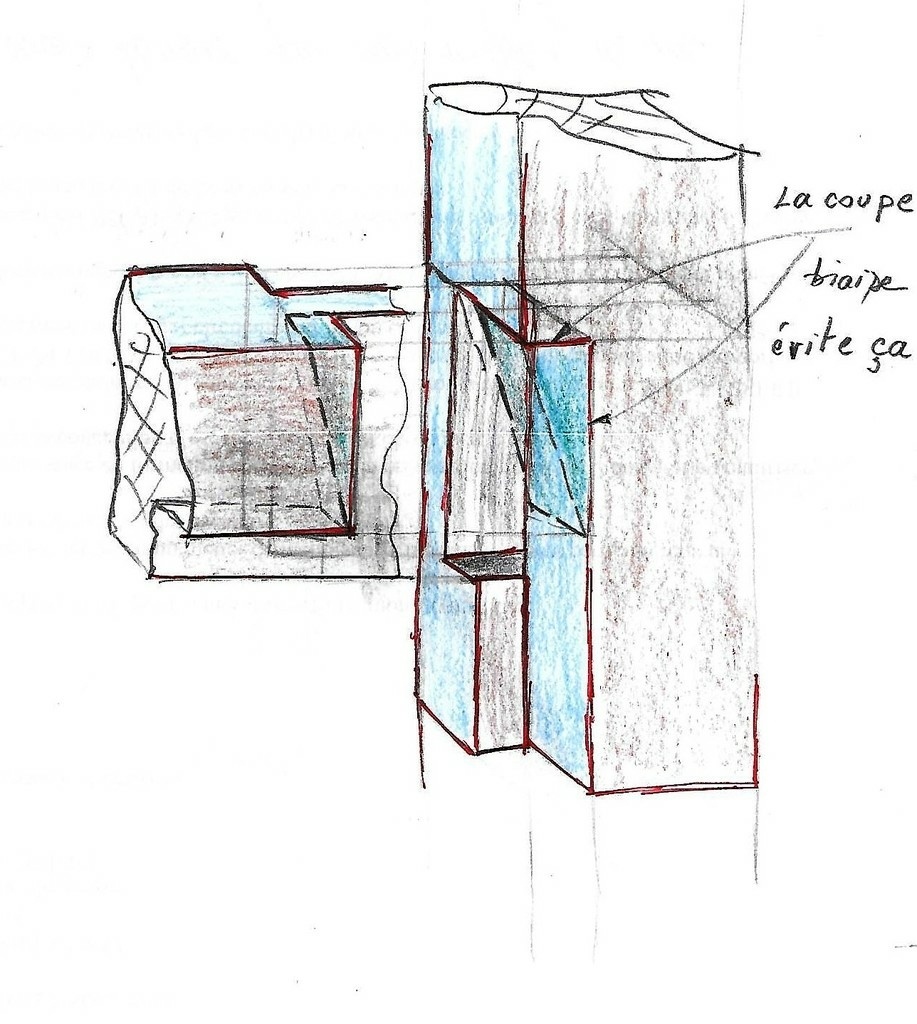 La coupe
biaise
évite ça